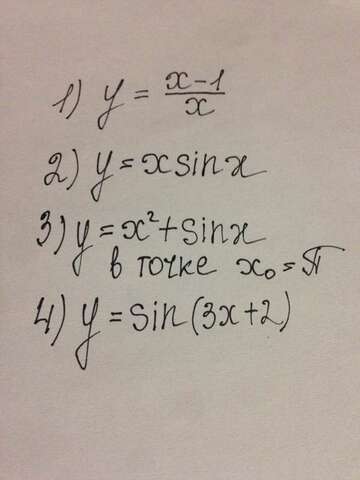 1) y = (x-1)/x
2) y = x sin x
3) y = x² + sin x
в точке x₀ = π
4) y = sin (3x+2)